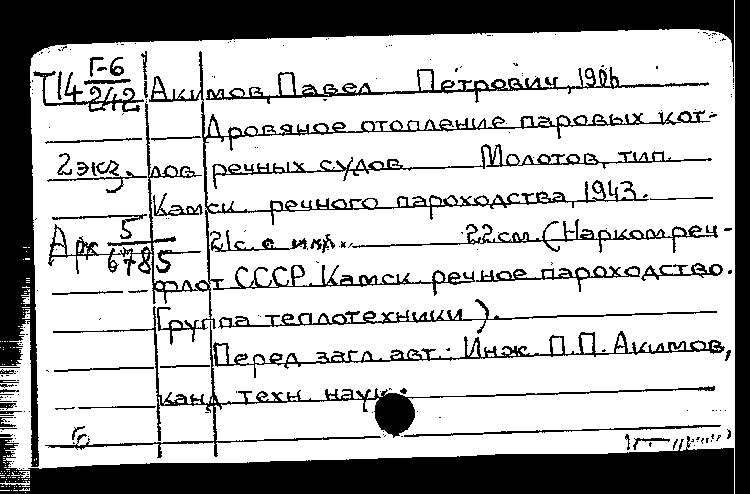 Т14 Г-6/242 Акимов, Павел Петрович, 190
Дровяное отопление паровых кот-
2 экз. лов речных судов. Молотов, тип.
Камск. речного пароходства, 1943.
Арх 5/6785 21 с. с илл. 22 см. (Наркомреч-
флот СССР. Камск. речное пароходство.
Группа теплотехники).
Перед загл. авт.: Инж. П.П. Акимов,
канд. техн. наук.
Б